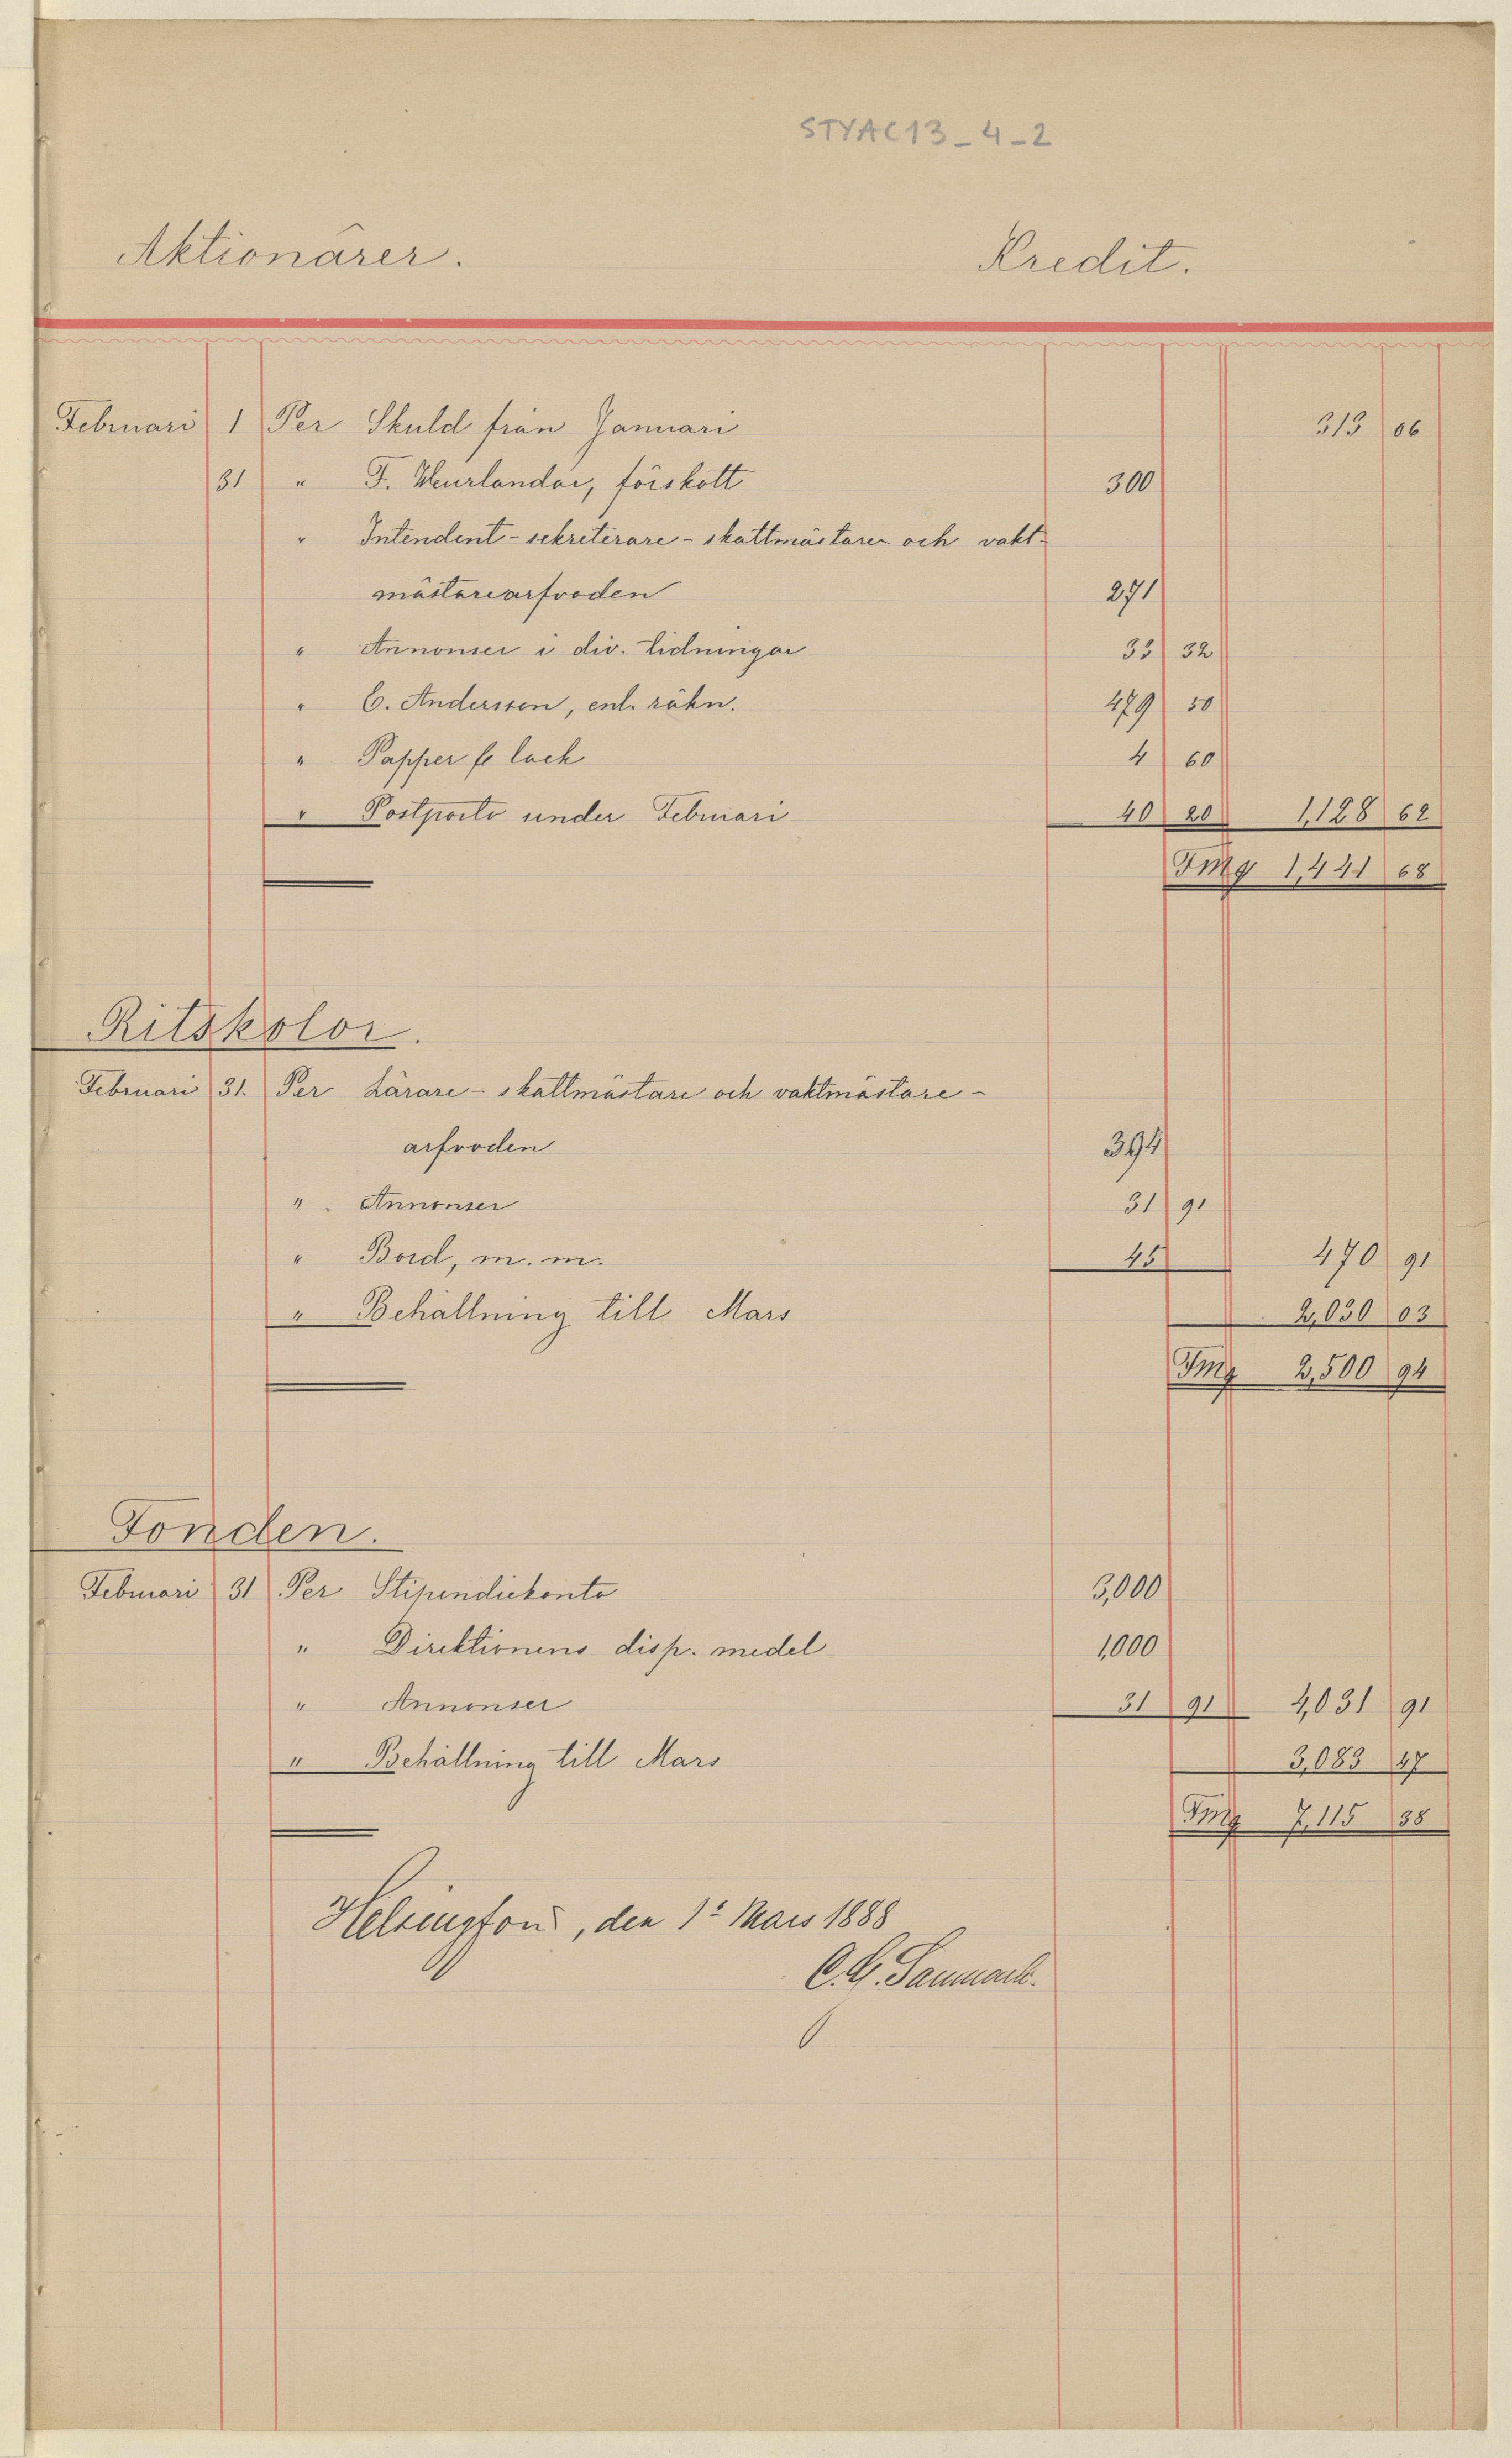 STYAC13_4_2
Aktionärer. Kredit.
Februari 1 Per Skuld från Januari 313 06
31 " F. Heurlander, förskott 300
" Intendent-sekreterare-skattmästare och vakt-
mästarearfvoden 271
" Annonser i div. tidningar 33 32
" C. Andersson, enl. räkn. 479 50
" Papper & lack 4 60
" Postporto under Februari 40 20 1,128 62
Fmg 1,441 68
Ritskolor.
Februari 31. Per Lärare-skattmästare och vaktmästare-
arfvoden 394
" Annonser 31 91
" Bord, m. m. 45 470 91
" Behållning till Mars 2,030 03
Fmg 2,500 94
Fonden.
Februari 31 Per Stipendiekonto 3,000
" Direktionens disp. medel 1,000
" Annonser 31 91 4,031 91
" Behållning till Mars 3,083 47
Fmg 7,115 38
Helsingfors, den 1 Mars 1888